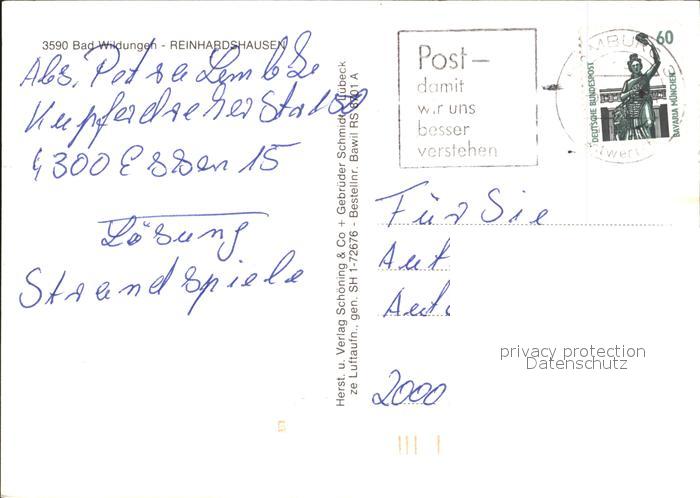 3590 Bad Wildungen - REINHARDSHAUSEN
Abs. Petra Lembke
Kupferdreher Str 150
4300 Essen 15
Lösung
Strandspiele
Herst. u. Verlag Schöning & Co + Gebrüder Schmidt, Lübeck
ze Luftaufn., gen. SH 1-72676 - Bestellnr. Bawil RS 6201 A
Post –
damit
wir uns
besser
verstehen
60
DEUTSCHE BUNDESPOST
BAVARIA MÜNCHEN
Für Sie
Ant
2000
privacy protection
Datenschutz